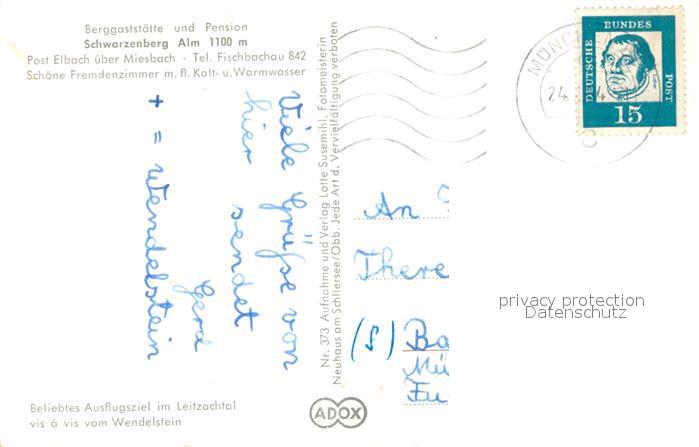 Berggaststätte und Pension
Schwarzenberg Alm 1100 m
Post Elbach über Miesbach · Tel. Fischbachau 842
Schöne Fremdenzimmer m. fl. Kalt- u. Warmwasser
Viele Grüße von
hier sendet
Gerd
+ = Wendelstein
Beliebtes Ausflugsziel im Leitzachtal
vis à vis vom Wendelstein
Nr. 373 Aufnahme und Verlag Lotte Susemihl, Fotomeisterin
Neuhaus am Schliersee/Obb. Jede Art d. Vervielfältigung verboten
ADOX
DEUTSCHE BUNDES POST
15
MÜNC
24.
An
There
(8) Ba
Mü
privacy protection
Datenschutz